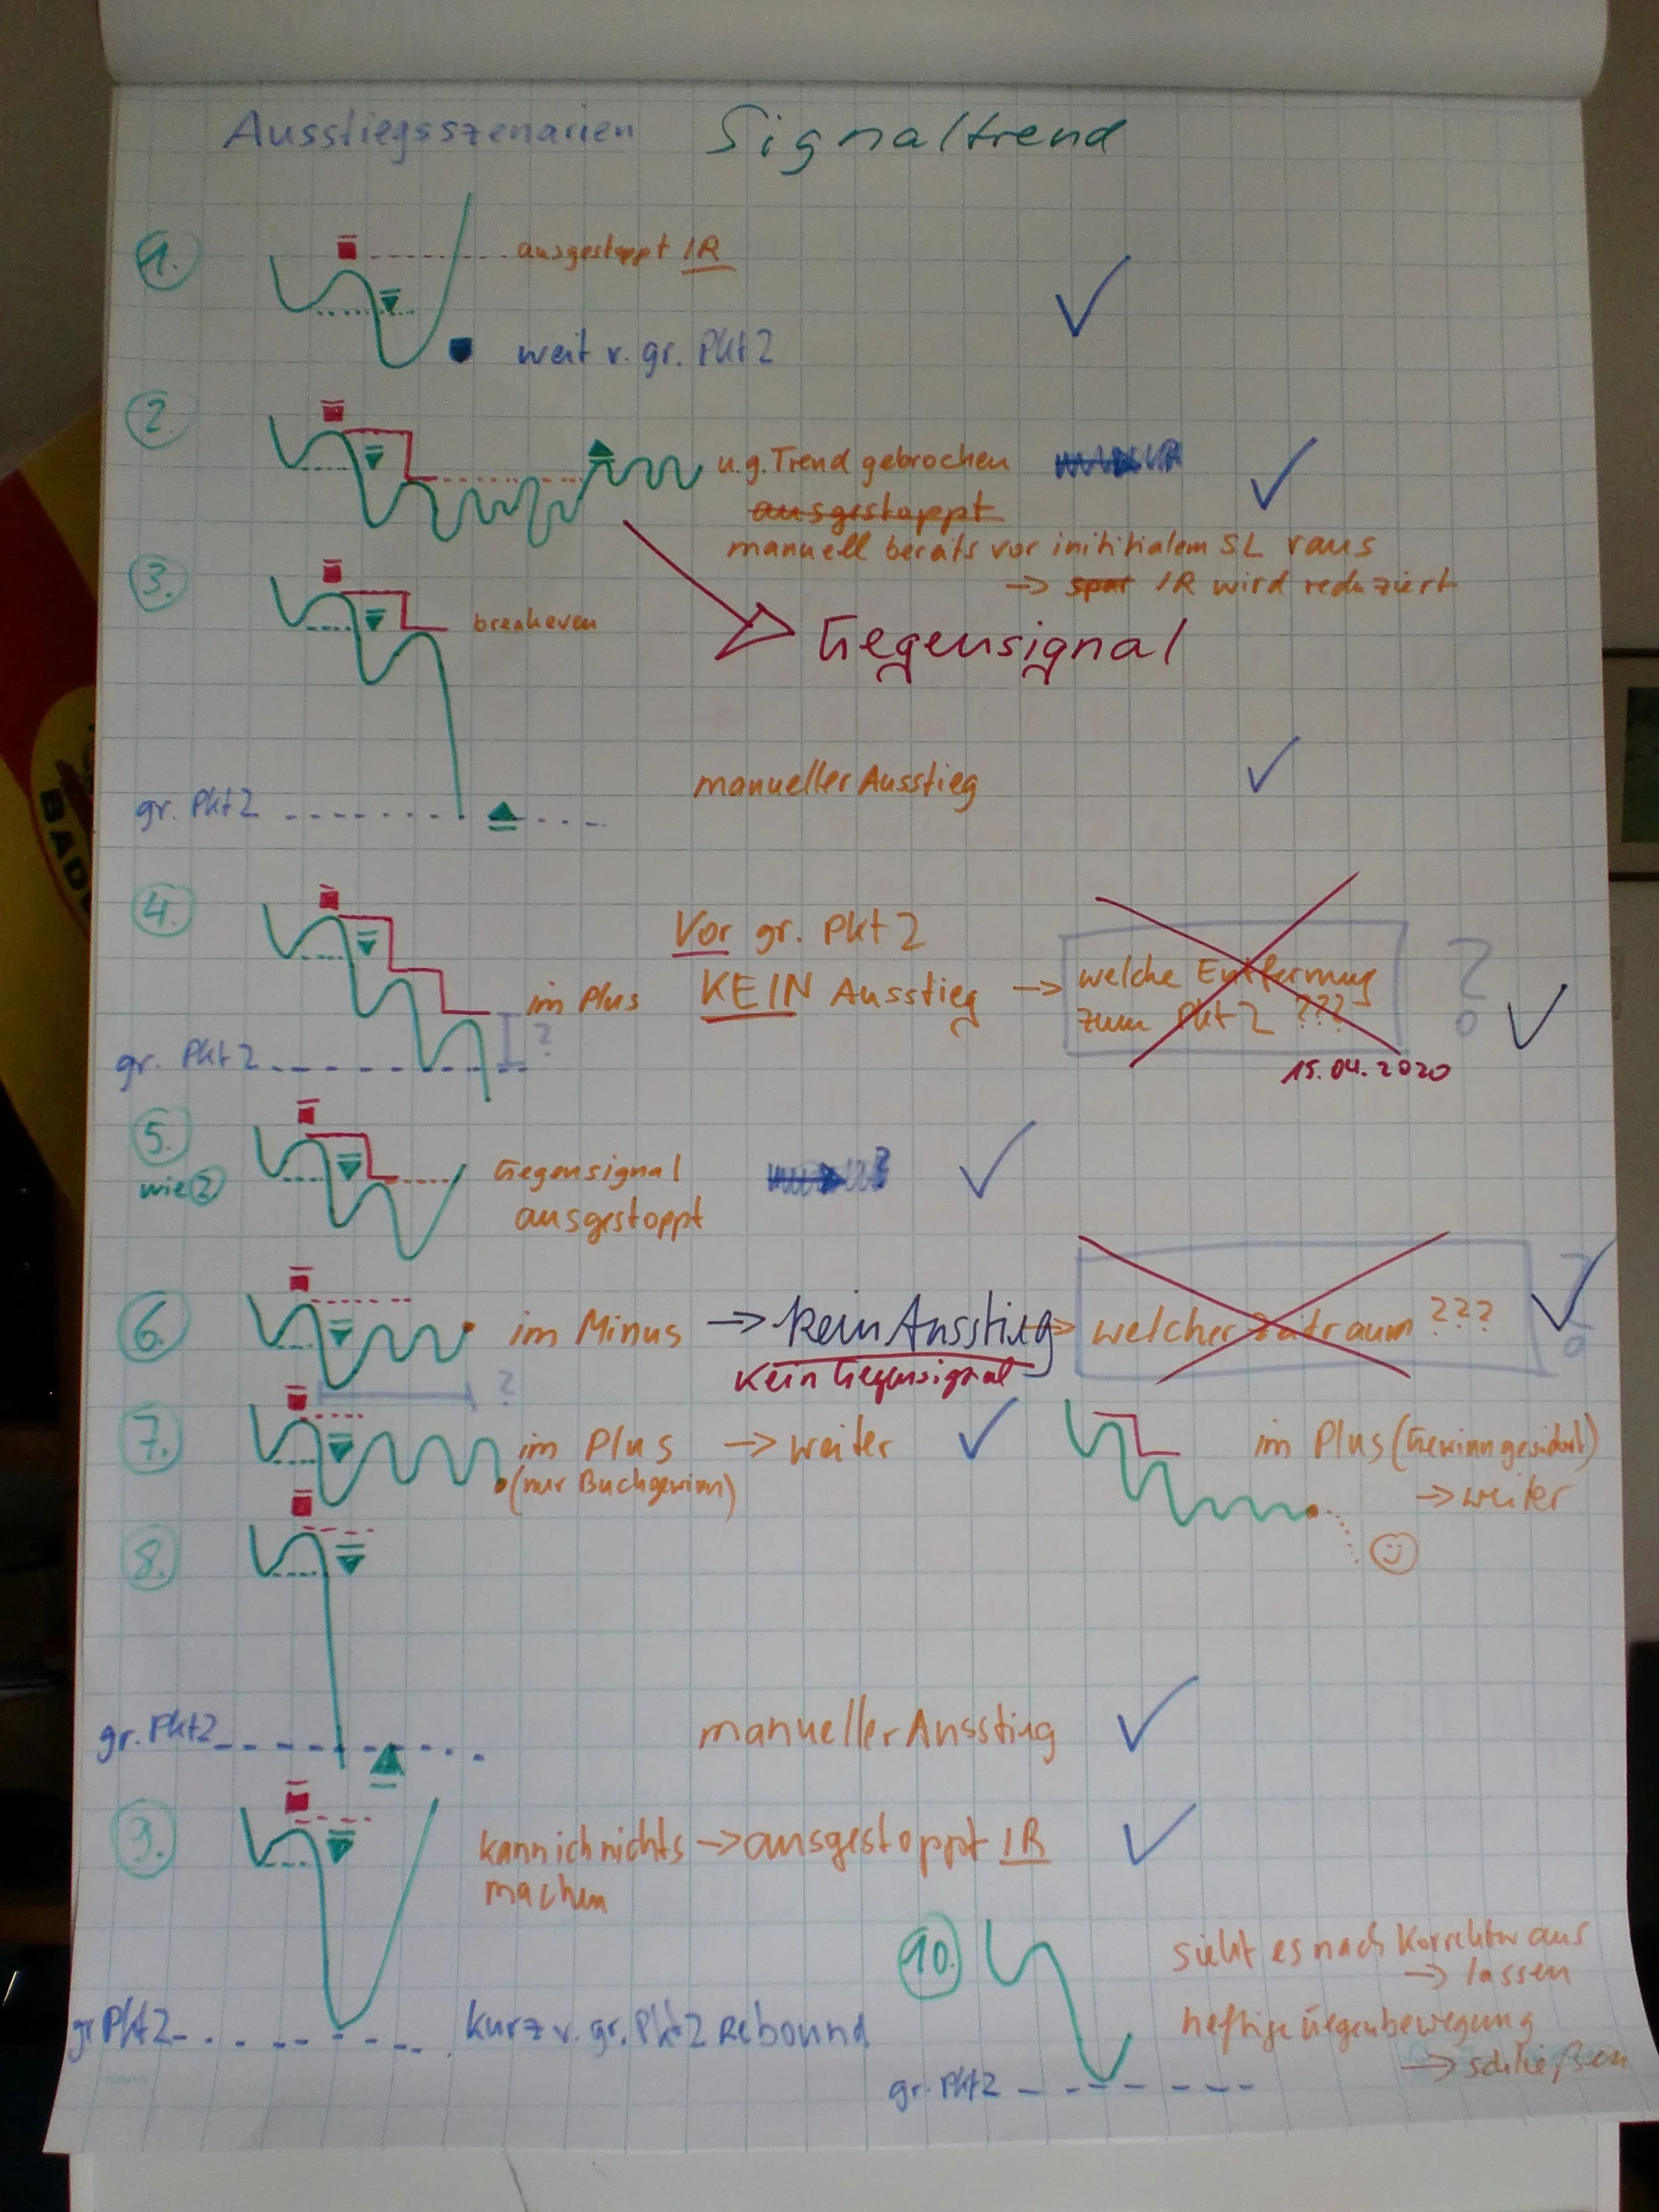 Ausstiegsszenarien Signaltrend
1.
ausgestoppt 1R
weit v. gr. Pkt 2
2.
u.g. Trend gebrochen
ausgestoppt
manuell bereits vor inititialem SL raus
→ spar 1R wird reduziert
3.
breakeven
Gegensignal
manueller Ausstieg
gr. Pkt 2
4.
Vor gr. Pkt 2
im Plus KEIN Ausstieg → welche Entfernung
zum Pkt 2 ??? ?
?
gr. Pkt 2
15.04.2020
5.
wie 2
Gegensignal
ausgestoppt
6.
im Minus → kein Ausstieg → welcher Zeitraum ???
kein Gegensignal
?
7.
im Plus → weiter
(nur Buchgewinn)
im Plus (Gewinn gesichert)
→ weiter
8.
gr. Pkt 2
manueller Ausstieg
9.
kann ich nichts → ausgestoppt 1R
machen
gr Pkt 2
kurz v. gr. Pkt 2 Rebound
10.
sieht es nach Korrektur aus
→ lassen
heftige Gegenbewegung
→ schließen
gr. Pkt 2
BAD